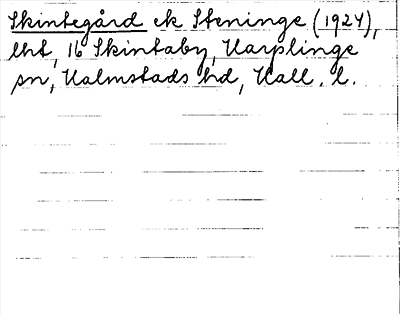 Skintegård ek Steninge (1924),
lht, 16 Skintaby, Harplinge
sn, Halmstads hd, Hall. l.